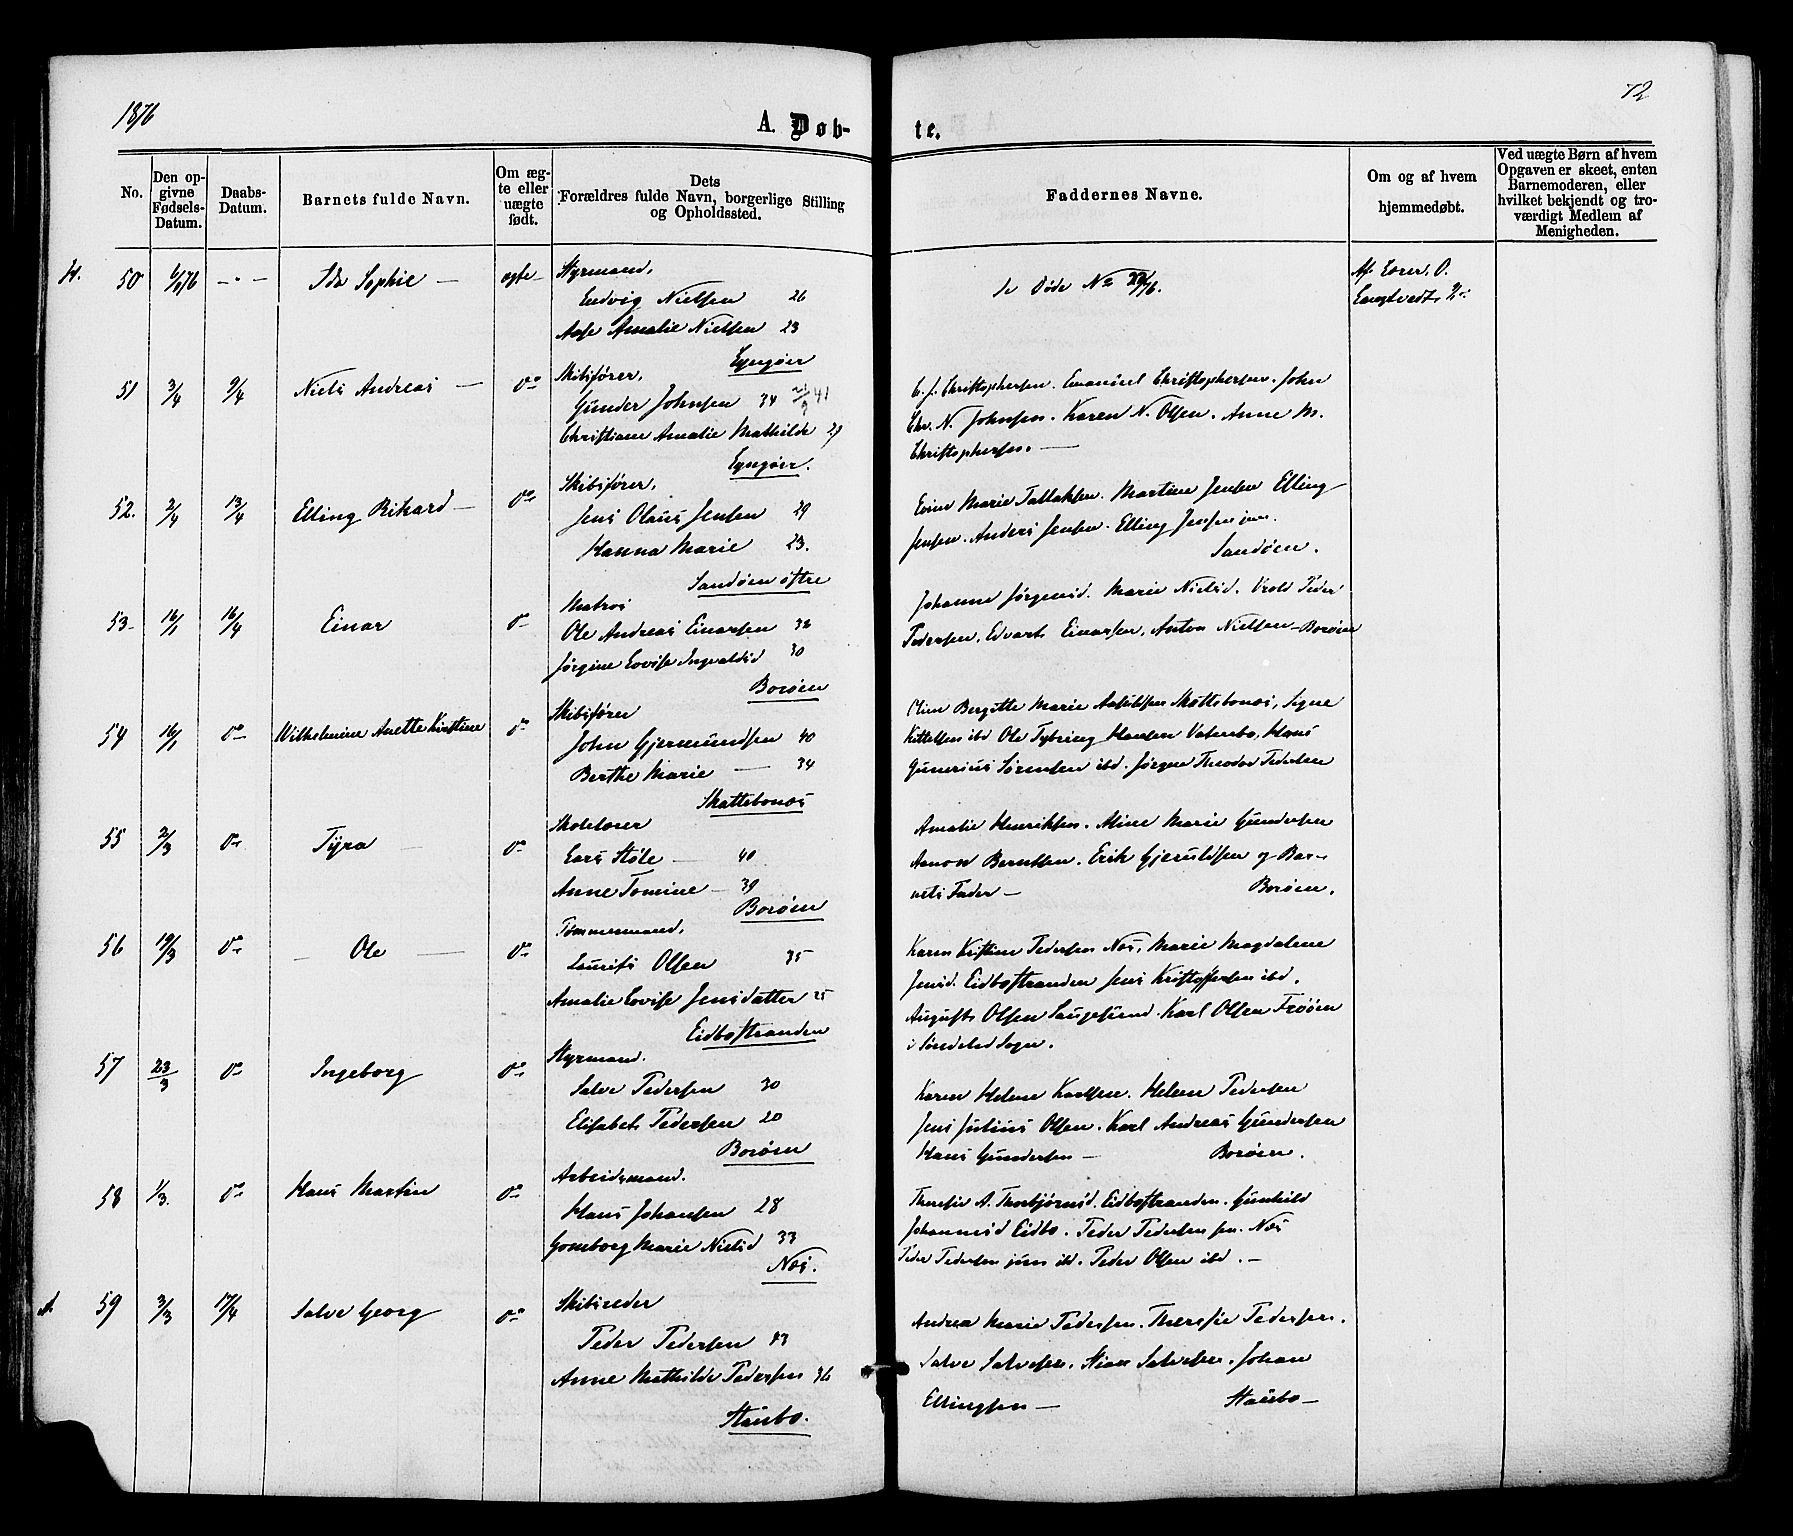 1876
72
A. Døb-
te.
No.
Den op-
givne
Fødsels-
Datum.
Daabs-
Datum.
Barnets fulde Navn.
Om æg-
te eller
uægte
født.
Dets
Forældres fulde Navn, borgerlige Stilling
og Opholdssted.
Faddernes Navne.
Om og af hvem
hjemmedøbt.
Ved uægte Børn af hvem
Opgaven er skeet, enten
Barnemoderen, eller
hvilket bekjendt og tro-
værdigt Medlem af
Menigheden.
H. 50 Ida Sophie — ægte
Styrmand,
Ludvig Nielsen 26
Aase Amalie Nielsen 23
Lyngøer
se Døde No
Af Lærer O.
51 3/4 9/4 Niels Andreas — do
Skibsfører,
Gunder Johnsen 34
Christiane Amalie Mathilde 29
Lyngøer.
C. J. Christophersen. Emanuel Christophersen. John
Chr. N. Johnsen. Karen N. Olsen. Anne M.
Christophersen. —
52. 2/4 13/4 Elling Rikard — do
Skibsfører,
Jens Olaus Jensen 29
Hanna Marie 23.
Sandøen østre
Marie Tallaksen. Martine Jensen Elling
Jensen. Anders Jensen. Elling Jensen jun.
Sandøen.
53 16/1 16/4 Einar do
Matros
Ole Andreas Einarsen 32
Jørgine Lovise Ingvaldsd 30
Borøen
Johanne Jørgensd. Marie Nielsd. Vrold Peder
Pedersen. Edvart Einarsen, Anton Nielsen – Borøen
54 16/1 do Wilhelmine Anette Kirstine do
Skibsfører
John Gjermundsen 40
Berthe Marie — 34
Skattebonæs
Oline Bergitte Marie Aslaksen Skottebonæs, Signe
Kittelsen ibd Ole Tybring Hansen Vatnebo, Hans
Gunerius Sørensen ibd. Jørgen Theodor Pedersen
55 2/3 do Tyra — do
Skolelærer
Lars Støle — 40
Anne Tomine — 39
Borøen
Amalie Henriksen. Aline Marie Gundersen
Aanon Berntsen. Erik Gjeruldsen og Bar-
nets Fader — Borøen.
56 19/3 do — Ole — do
Tømmermand,
Laurits Olsen 35
Amalie Lovise Jensdatter 25
Eidbostranden
Karen Kirstine Pedersen Næs, Marie Magdalene
Jensd. Eidbostranden Jens Kristoffersen ibd.
August Olsen Laugesund. Karl Olsen Frøøen
i Søndeled Sogn.
57 23/3 do Ingeborg do
Styrmand.
Salve Pedersen 30
Elisabet Pedersen 20
Borøen
Karen Helene Karlsen. Helene Pedersen
Jens Julius Olsen. Karl Andreas Gundersen
Hans Gundersen — Borøen.
58 1/3. do Hans Martin do
Arbeidsmand.
Hans Johansen 28
Gomborg Marie Nielsd 33
Næs.
Theresie A. Thorbjørnsd. Eidbostranden. Gunhild
Johannesd Eidbo. Peder Pedersen sen. Næs
Peder Pedersen jun ibd. Peder Olsen ibd. —
A. 59 3/3 17/4 Salve Georg do
Skibsreder
Peder Pedersen 43
Anne Mathilde Pedersen 36
Staubo.
Andrea Marie Pedersen. Theresie Pedersen.
Salve Salvesen. Salvesen. Johan
Ellingsen — Staubo —